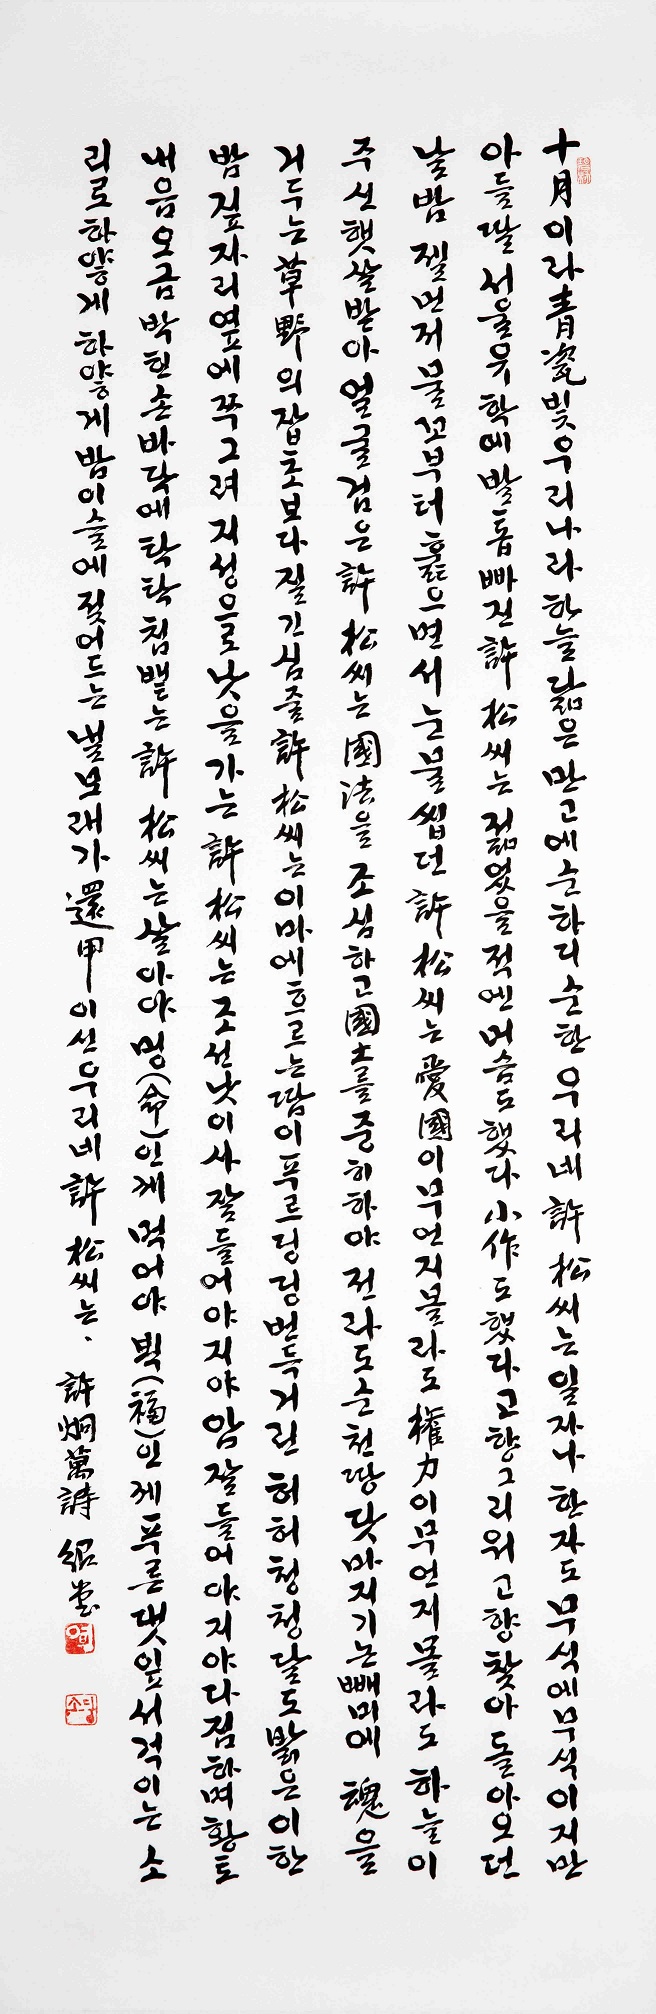 十月이라 靑瓷빛 우리나라 하늘 닮은 만고에 순하디 순한 우리네 許松씨는 일자나 한자도 무식에 무식이지만
아들딸 서울유학에 발톱 빠진 許松씨는 젊었을 적엔 머슴도 했다 小作도 했다 고향 그리워 고향 찾아 돌아오던
날 밤 젤 먼저 물꼬부터 흝으면서 눈물 씹던 許松씨는 愛國이 무언지 몰라도 權力이 무언지 몰라도 하늘이
주신 햇쌀 받아 얼굴 검은 許松씨는 國法을 조심하고 國土를 중히하야 전라도 순천땅 닷마지기 논빼미에 魂을
거두는 草野의 잡초보다 질긴 심줄 許松씨는 이마에 흐르는 땀이 푸르딩딩 번득거린 허허청청 달도 밝은 이 한
밤 깊자리 옆에 쭈그려 지성으로 낫을 가는 許松씨는 조선낫이사 잘 들어야지야 암 잘 들어야지야 다짐하며 황토
내음 오금박힌 손바닥에 탁탁 침뱉는 許松씨는 살아야 명(命)인께 먹어야 복(福)인께 푸른 댓잎 서걱이는 소
리로 하얗게 하얗게 밤이슬에 젖어드는 낼모래가 還甲이신 우리네 許松씨는、 許炯萬詩 紹堂
소당